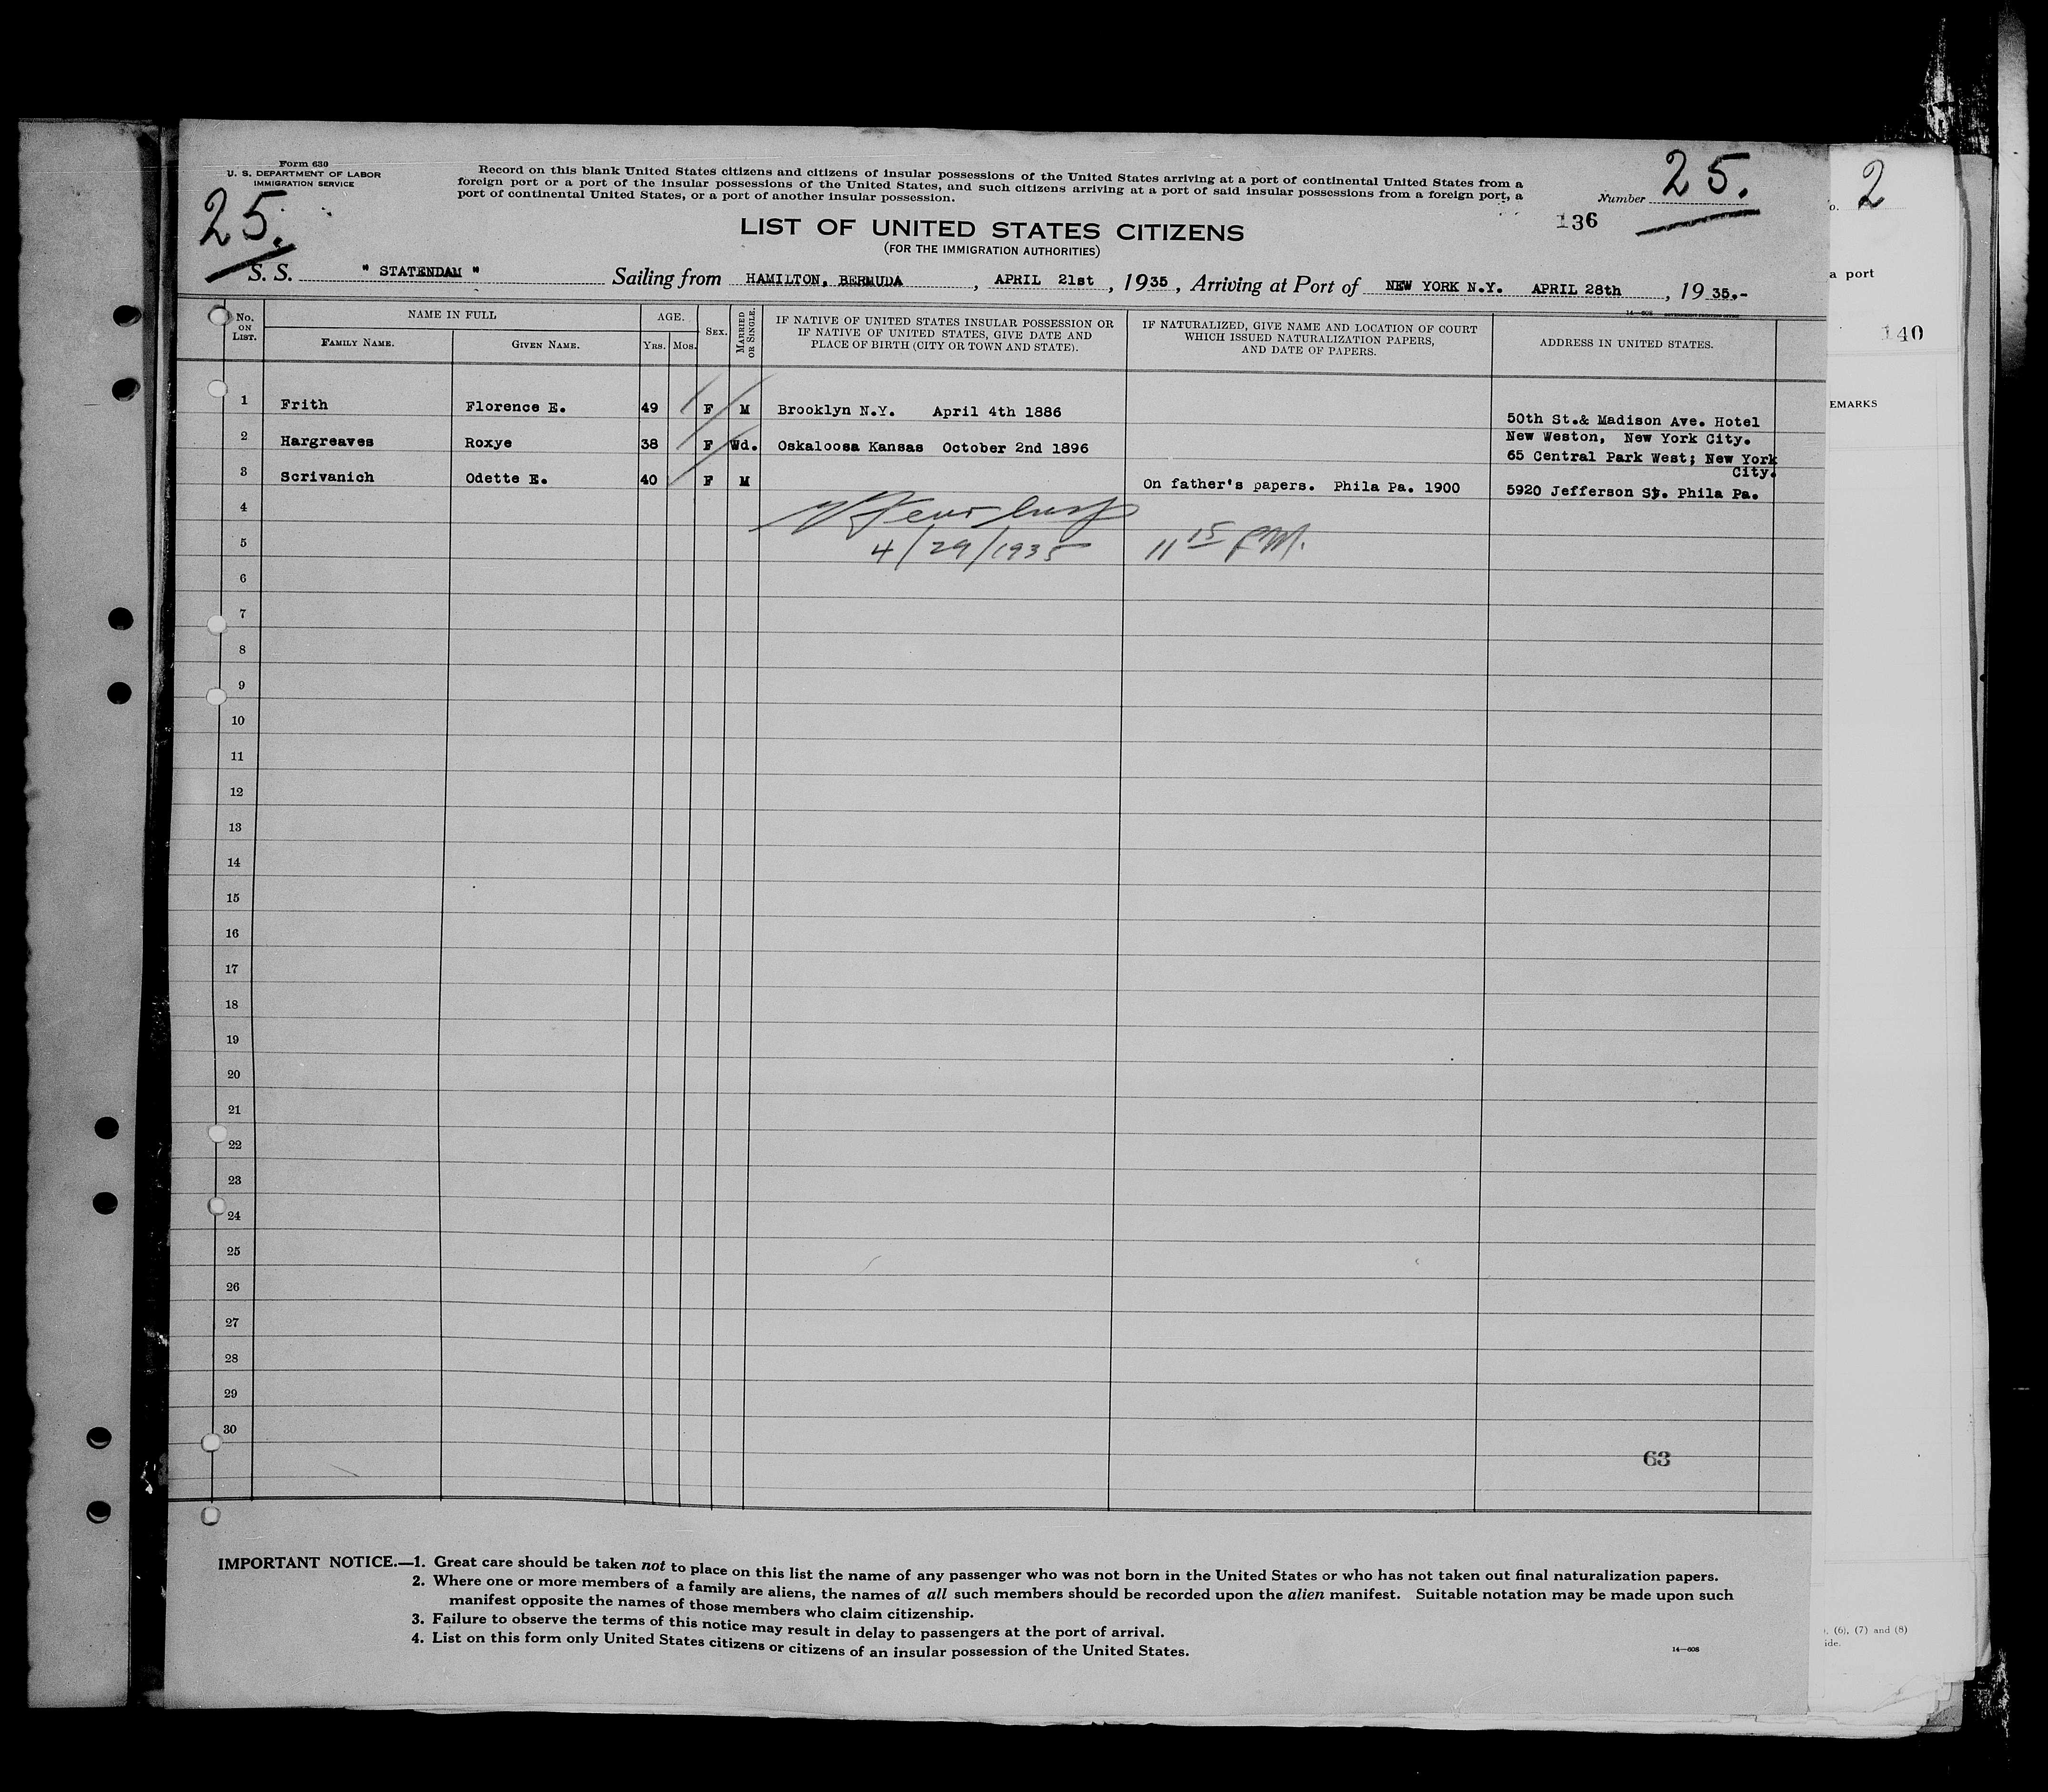 Form 630
U. S. DEPARTMENT OF LABOR
IMMIGRATION SERVICE
25.
Record on this blank United States citizens and citizens of insular possessions of the United States arriving at a port of continental United States from a
foreign port or a port of the insular possessions of the United States, and such citizens arriving at a port of said insular possessions from a foreign port, a
port of continental United States, or a port of another insular possession.
Number 25.
136
LIST OF UNITED STATES CITIZENS
(FOR THE IMMIGRATION AUTHORITIES)
S. S. " STATENDAM " Sailing from HAMILTON, BERMUDA, APRIL 21st, 1935, Arriving at Port of NEW YORK N.Y. APRIL 28th, 1935.-
No. ON LIST. NAME IN FULL FAMILY NAME. GIVEN NAME. AGE. YRS. MOS. SEX. MARRIED OR SINGLE.
IF NATIVE OF UNITED STATES INSULAR POSSESSION OR
IF NATIVE OF UNITED STATES, GIVE DATE AND
PLACE OF BIRTH (CITY OR TOWN AND STATE).
IF NATURALIZED, GIVE NAME AND LOCATION OF COURT
WHICH ISSUED NATURALIZATION PAPERS,
AND DATE OF PAPERS.
ADDRESS IN UNITED STATES.
1 Frith Florence E. 49 F M Brooklyn N.Y. April 4th 1886 50th St.& Madison Ave. Hotel
New Weston, New York City.
2 Hargreaves Roxye 38 F Wd. Oskaloosa Kansas October 2nd 1896 65 Central Park West; New York
City.
3 Scrivanich Odette E. 40 F M On father's papers. Phila Pa. 1900 5920 Jefferson St. Phila Pa.
4
5 4/29/1935 11 15 P.M.
6
7
8
9
10
11
12
13
14
15
16
17
18
19
20
21
22
23
24
25
26
27
28
29
30
63
IMPORTANT NOTICE.—1. Great care should be taken not to place on this list the name of any passenger who was not born in the United States or who has not taken out final naturalization papers.
2. Where one or more members of a family are aliens, the names of all such members should be recorded upon the alien manifest. Suitable notation may be made upon such
manifest opposite the names of those members who claim citizenship.
3. Failure to observe the terms of this notice may result in delay to passengers at the port of arrival.
4. List on this form only United States citizens or citizens of an insular possession of the United States.
14—608
o. 2
a port
140
EMARKS
, (6), (7) and (8)
ide.